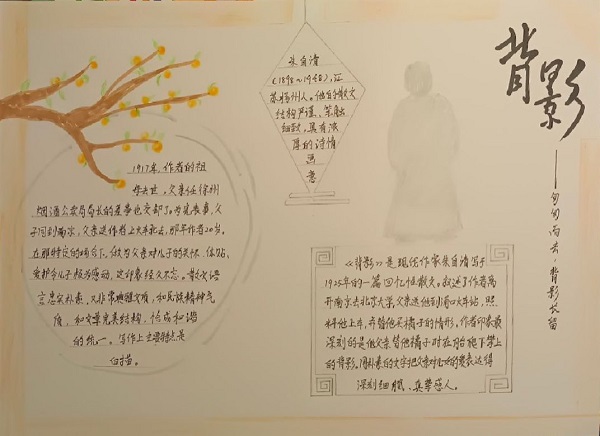 背影
——匆匆而去,背影长留
朱自清
(1898~1948),江
苏扬州人。他的散文
结构严谨,笔触
细致,具有浓
厚的诗情
画
意
1917年,作者的祖
母去世,父亲任徐州
烟酒公卖局局长的差事也交卸了。办完丧事,父
子同到南京,父亲送作者上火车北去,那年作者20岁。
在那特定的场合下,做为父亲对儿子的关怀、体贴、
爱护,令儿子极为感动,这印象经久不忘。散文语
言忠实朴素,又非常典雅文质,和民族精神气
质,和文学完美结构,恰成和谐
的统一。写作上主要特点是
白描。
《背影》是现代作家朱自清写于
1925年的一篇回忆性散文。叙述了作者离
开南京去北京大学,父亲送他到浦口火车站,照
料他上车,并替他买橘子的情形。作者印象最
深刻的是他父亲替他买橘子时在月台爬下攀上
的背影。用朴素的文字把父亲对儿女的爱表达得
深刻细腻,真挚感人。